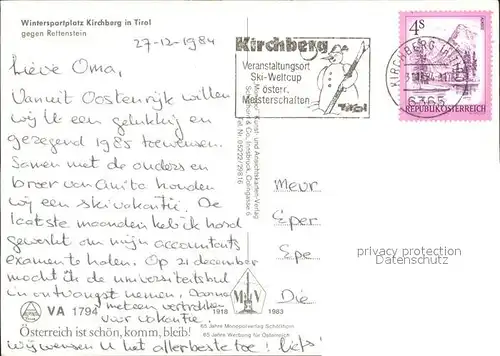 Wintersportplatz Kirchberg in Tirol
gegen Rettenstein
27-12-1984
Lieve Oma,
Vanuit Oostenrijk willen
wij U een gelukkig en
gezegend 1985 toewensen.
Samen met de ouders en
broer van Anita houden
wij een skivakantie. De
laatste maanden heb ik hard
gewerkt om mijn accountants
examen te halen. Op 21 december
mocht ik de universiteitsbul
in ontvangst nemen, daarna
meteen vertrokken
voor vakantie.
Wij wensen U het allerbeste toe! Liefs!
VA 1794
Österreich ist schön, komm, bleib!
Kirchberg
Veranstaltungsort
Ski-Weltcup
österr.
Meisterschaften
Tirol
4S
REPUBLIK ÖSTERREICH
KIRCHBERG
6365
Kunst- und Ansichtskarten-Verlag
Innsbruck
Tel. Nr. 05222/29816
M V
1918 1983
65 Jahre Monopolverlag
65 Jahre Werbung für Österreich
Mevr
Eper
Epe
Die
privacy protection
Datenschutz